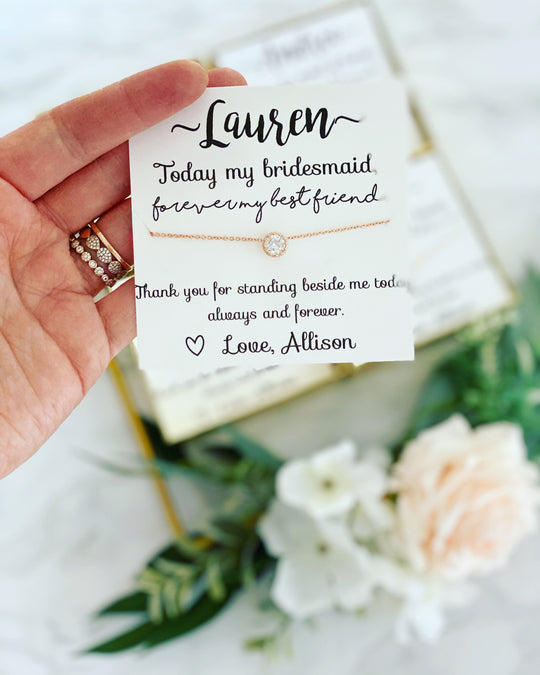 ~Lauren~
Today my bridesmaid,
forever my best friend
Thank you for standing beside me today
always and forever.
♡ Love, Allison